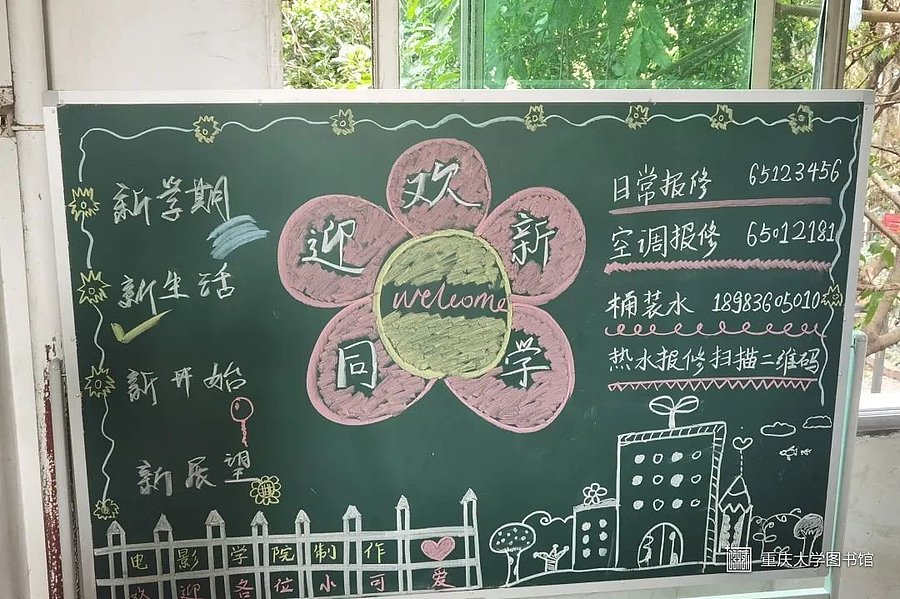 新学期
新生活
新开始
新展望
欢迎新同学
welcome
日常报修 65123456
空调报修 65012181
桶装水 18983605010
热水报修扫描二维码
电影学院制作
欢迎各位小可爱
重庆大学图书馆